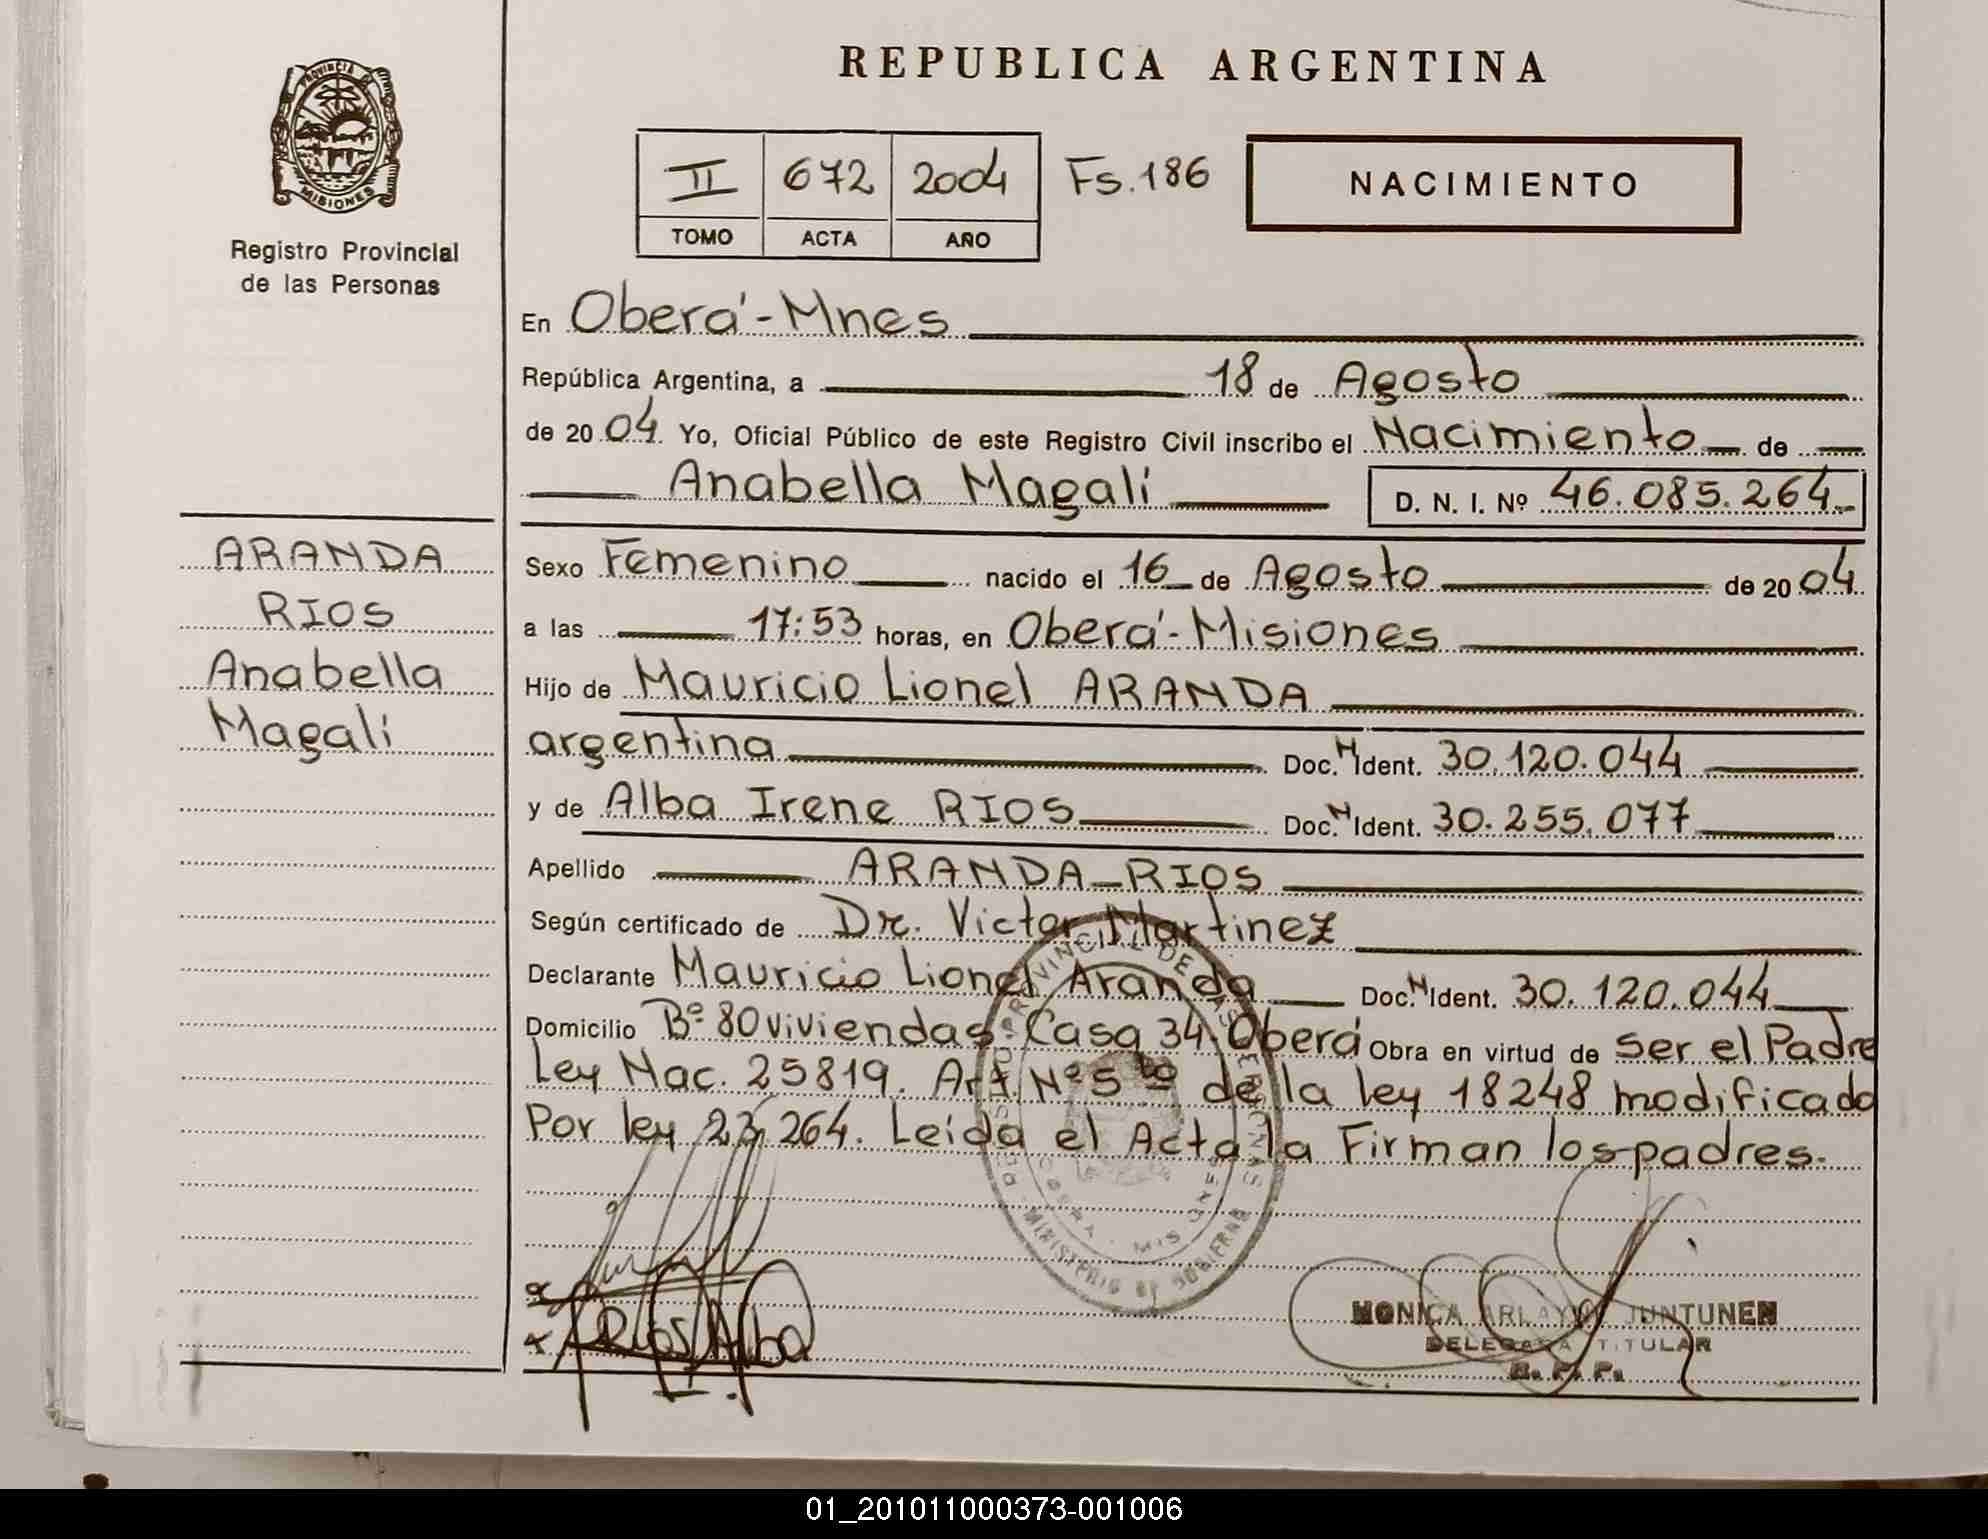 REPUBLICA ARGENTINA
PROVINCIA D MISIONES
Registro Provincial
de las Personas
II 672 2004 Fs.186
TOMO ACTA AÑO
NACIMIENTO
En Oberá-Mnes
República Argentina, a 18 de Agosto
de 2004. Yo, Oficial Público de este Registro Civil inscribo el Nacimiento de
Anabella Magalí D. N. I. Nº 46.085.264.-
ARANDA
RIOS
Anabella
Magalí
Sexo Femenino nacido el 16 de Agosto de 2004.
a las 17:53 horas, en Oberá-Misiones
Hijo de Mauricio Lionel ARANDA
argentina Doc. N Ident. 30.120.044
y de Alba Irene RIOS Doc. N Ident. 30.255.077
Apellido ARANDA RIOS
Según certificado de Dr. Victor Martinez
Declarante Mauricio Lionel Aranda Doc. N Ident. 30.120.044
Domicilio Bº 80 viviendas Casa 34. Oberá Obra en virtud de ser el Padre
Ley Nac. 25819. Art. Nº 5to de la ley 18248 modificada
Por ley 23.264. Leída el Acta la Firman los padres.
PROVINCIAL DE LAS PERSONAS
OBERA - MISIONES
MINISTERIO DE GOBIERNO
x
x Rios Alba
MONICA JUNTUNEN
DELEGADA TITULAR
R. P. P.
01_201011000373-001006